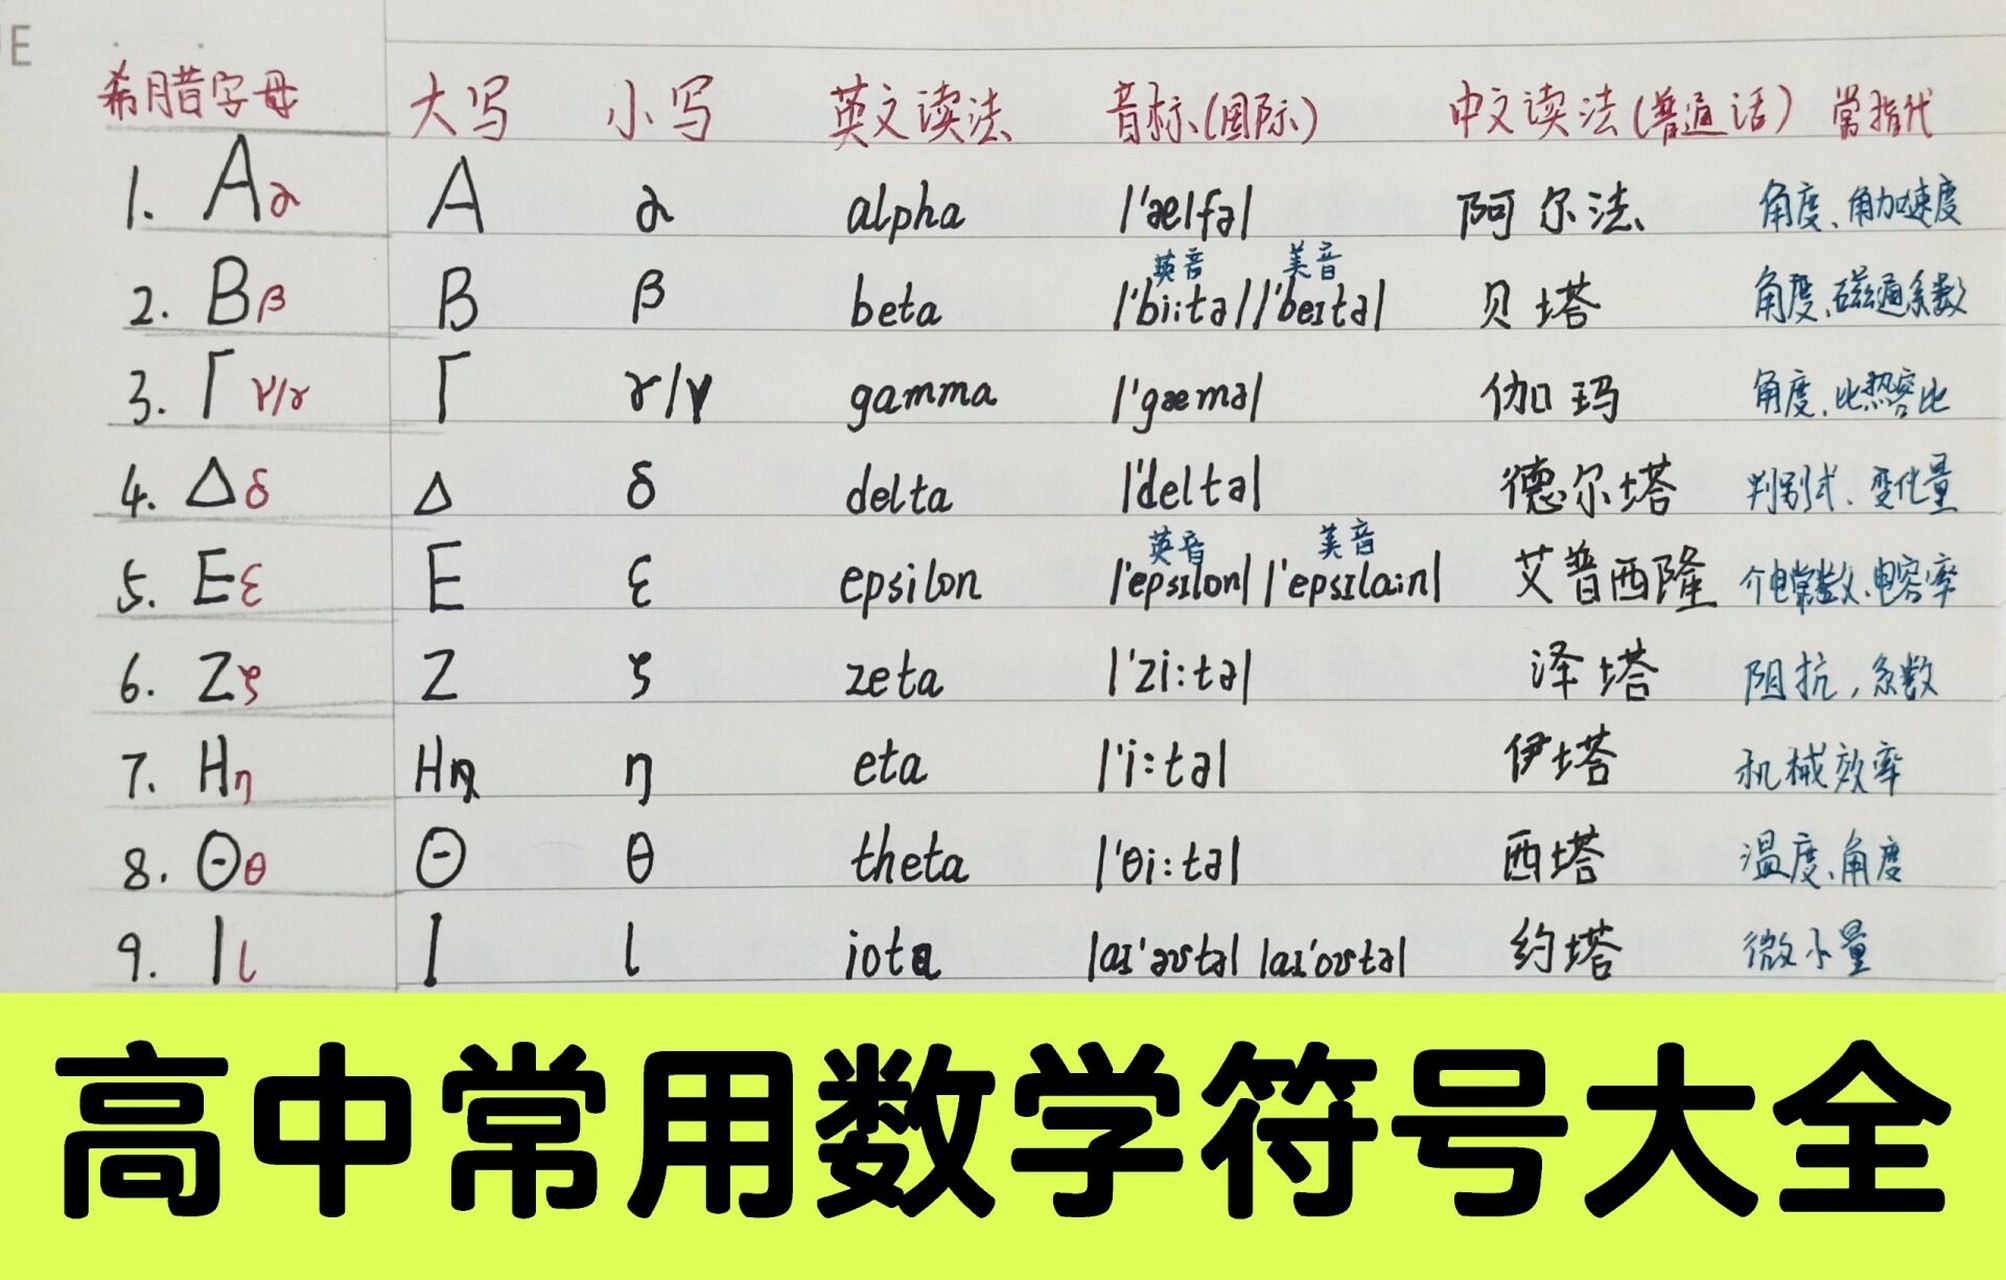 E
希腊字母 大写 小写 英文读法 音标(国际) 中文读法(普通话) 常指代
1. Aα A α alpha |'ælfə| 阿尔法 角度、角加速度
英音 美音
2. Bβ B β beta |'bi:tə| |'beɪtə| 贝塔 角度、磁通系数
3. Γ γ/γ Γ γ/γ gamma |'gæmə| 伽玛 角度、比热容比
4. Δδ Δ δ delta |'deltə| 德尔塔 判别式、变化量
英音 美音
5. Eε E ε epsilon |'epsɪlon| |'epsɪlɑ:n| 艾普西隆 介电常数、电容率
6. Zζ Z ζ zeta |'zi:tə| 泽塔 阻抗,系数
7. Hη H η eta |'i:tə| 伊塔 机械效率
8. Θθ Θ θ theta |'θi:tə| 西塔 温度、角度
9. Iι I ι iota |aɪ'əʊtə| |aɪ'oʊtə| 约塔 微小量
高中常用数学符号大全